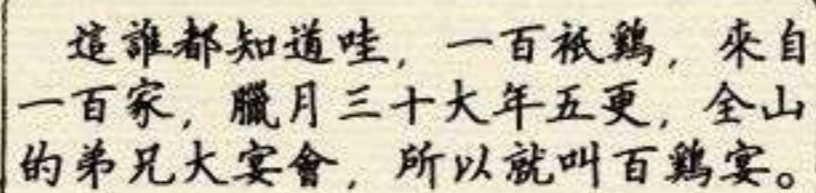 這誰都知道哇,一百袛鷄,來自
一百家,臘月三十大年五更,全山
的弟兄大宴會,所以就叫百鷄宴。